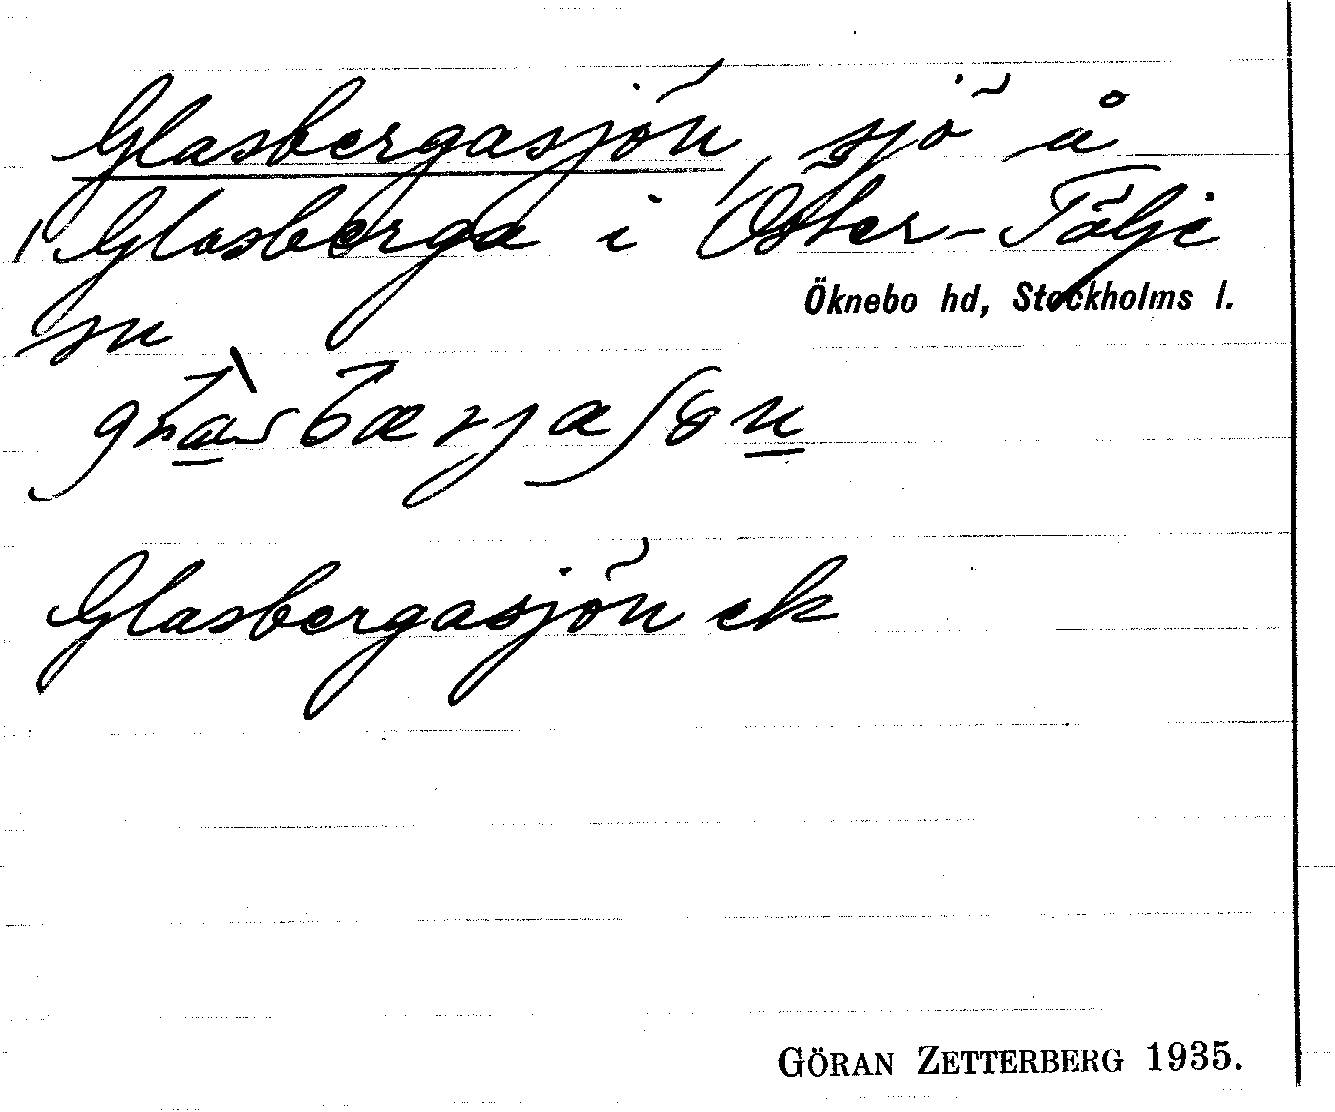 Glasbergasjön, sjö å
Glasberga i Öster-Tälje
Öknebo hd, Stockholms l.
sn
Glasbergasjön ek
GÖRAN ZETTERBERG 1935.